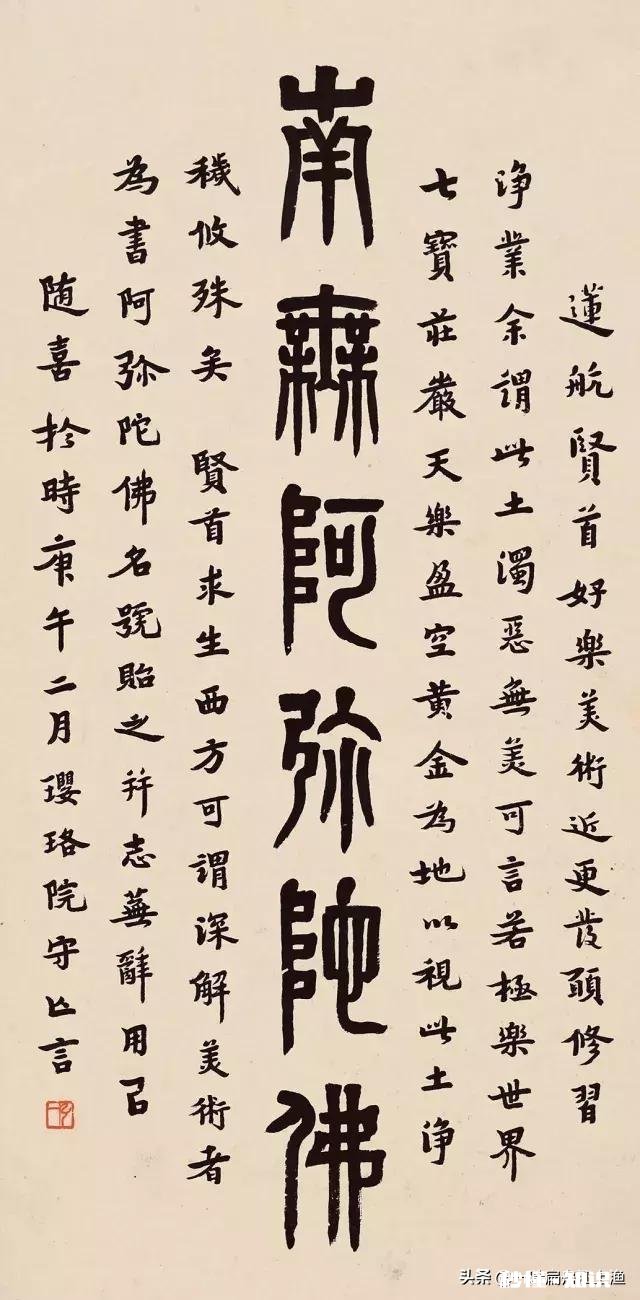 蓮航賢首好樂美術近更發願修習
浄業余謂此土濁惡無美可言若極樂世界
七寶莊嚴天樂盈空黄金為地以視此土浄
南無阿弥陀佛
穢攸殊矣 賢首求生西方可謂深解美術者
為書阿弥陀佛名號貽之并志蕪辭用㠯
随喜於時庚午二月瓔珞院守亾言
头条